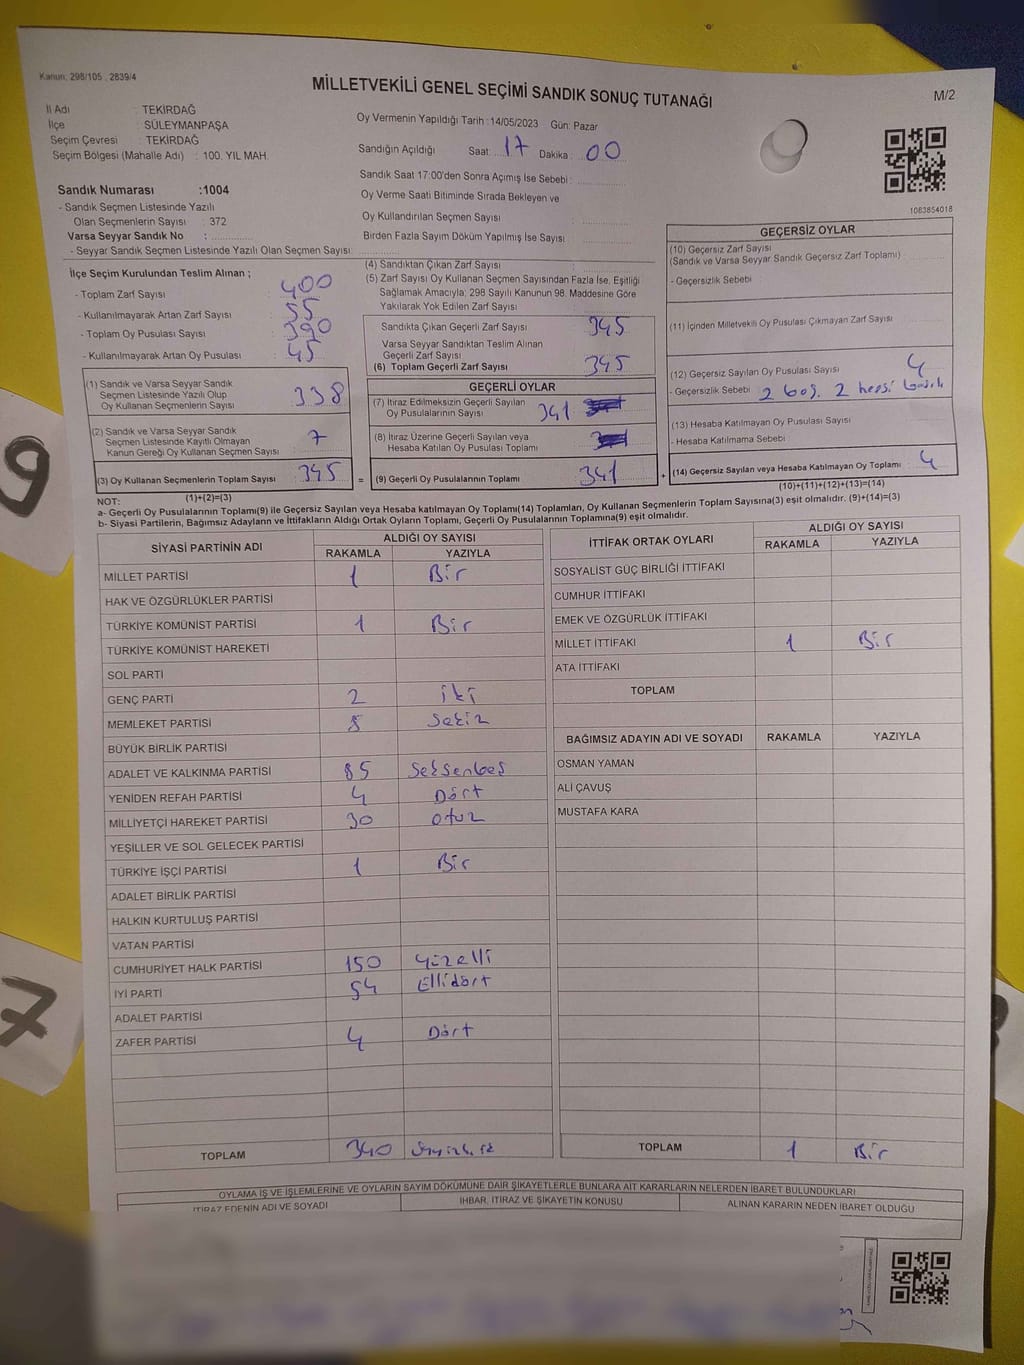 Kanun; 298/105 , 2839/4
MİLLETVEKİLİ GENEL SEÇİMİ SANDIK SONUÇ TUTANAĞI
M/2
İl Adı : TEKİRDAĞ
İlçe : SÜLEYMANPAŞA
Seçim Çevresi : TEKİRDAĞ
Seçim Bölgesi (Mahalle Adı) : 100. YIL MAH.
Oy Vermenin Yapıldığı Tarih :14/05/2023 Gün: Pazar
Sandığın Açıldığı Saat: 17 Dakika : 00
Sandık Saat 17:00'den Sonra Açımış İse Sebebi :
Oy Verme Saati Bitiminde Sırada Bekleyen ve
Oy Kullandırılan Seçmen Sayısı :
Birden Fazla Sayım Döküm Yapılmış İse Sayısı :
1083854018
Sandık Numarası :1004
- Sandık Seçmen Listesinde Yazılı
Olan Seçmenlerin Sayısı : 372
Varsa Seyyar Sandık No :
- Seyyar Sandık Seçmen Listesinde Yazılı Olan Seçmen Sayısı:
İlçe Seçim Kurulundan Teslim Alınan ;
- Toplam Zarf Sayısı : 400
- Kullanılmayarak Artan Zarf Sayısı : 55
- Toplam Oy Pusulası Sayısı : 390
- Kullanılmayarak Artan Oy Pusulası : 45
(1) Sandık ve Varsa Seyyar Sandık
Seçmen Listesinde Yazılı Olup
Oy Kullanan Seçmenlerin Sayısı 338
(2) Sandık ve Varsa Seyyar Sandık
Seçmen Listesinde Kayıtlı Olmayan
Kanun Gereği Oy Kullanan Seçmen Sayısı 7
(3) Oy Kullanan Seçmenlerin Toplam Sayısı 345
(1)+(2)=(3)
(4) Sandıktan Çıkan Zarf Sayısı :
(5) Zarf Sayısı Oy Kullanan Seçmen Sayısından Fazla İse, Eşitliği
Sağlamak Amacıyla; 298 Sayılı Kanunun 98. Maddesine Göre
Yakılarak Yok Edilen Zarf Sayısı
Sandıkta Çıkan Geçerli Zarf Sayısı 345
Varsa Seyyar Sandıktan Teslim Alınan
Geçerli Zarf Sayısı
(6) Toplam Geçerli Zarf Sayısı 345
GEÇERLİ OYLAR
(7) İtiraz Edilmeksizin Geçerli Sayılan
Oy Pusulalarının Sayısı 341
(8) İtiraz Üzerine Geçerli Sayılan veya
Hesaba Katılan Oy Pusulası Toplamı
= (9) Geçerli Oy Pusulalarının Toplamı 341 +
GEÇERSİZ OYLAR
(10) Geçersiz Zarf Sayısı
(Sandık ve Varsa Seyyar Sandık Geçersiz Zarf Toplamı) :
- Geçersizlik Sebebi :
(11) İçinden Milletvekili Oy Pusulası Çıkmayan Zarf Sayısı
(12) Geçersiz Sayılan Oy Pusulası Sayısı : 4
- Geçersizlik Sebebi : 2 boş. 2 hepsi basılı
(13) Hesaba Katılmayan Oy Pusulası Sayısı :
- Hesaba Katılmama Sebebi :
(14) Geçersiz Sayılan veya Hesaba Katılmayan Oy Toplamı 4
(10)+(11)+(12)+(13)=(14)
NOT:
a- Geçerli Oy Pusulalarının Toplamı(9) ile Geçersiz Sayılan veya Hesaba katılmayan Oy Toplamı(14) Toplamları, Oy Kullanan Seçmenlerin Toplam Sayısına(3) eşit olmalıdır. (9)+(14)=(3)
b- Siyasi Partilerin, Bağımsız Adayların ve İttifakların Aldığı Ortak Oyların Toplamı, Geçerli Oy Pusulalarının Toplamına(9) eşit olmalıdır.
SİYASİ PARTİNİN ADI ALDIĞI OY SAYISI
RAKAMLA YAZIYLA
MİLLET PARTİSİ 1 Bir
HAK VE ÖZGÜRLÜKLER PARTİSİ
TÜRKİYE KOMÜNİST PARTİSİ 1 Bir
TÜRKİYE KOMÜNİST HAREKETİ
SOL PARTİ
GENÇ PARTİ 2 iki
MEMLEKET PARTİSİ 8 Sekiz
BÜYÜK BİRLİK PARTİSİ
ADALET VE KALKINMA PARTİSİ 85 Seksenbeş
YENİDEN REFAH PARTİSİ 4 Dört
MİLLİYETÇİ HAREKET PARTİSİ 30 otuz
YEŞİLLER VE SOL GELECEK PARTİSİ
TÜRKİYE İŞÇİ PARTİSİ 1 Bir
ADALET BİRLİK PARTİSİ
HALKIN KURTULUŞ PARTİSİ
VATAN PARTİSİ
CUMHURİYET HALK PARTİSİ 150 Yüzelli
İYİ PARTİ 54 Ellidört
ADALET PARTİSİ
ZAFER PARTİSİ 4 Dört
TOPLAM 340
İTTİFAK ORTAK OYLARI ALDIĞI OY SAYISI
RAKAMLA YAZIYLA
SOSYALİST GÜÇ BİRLİĞİ İTTİFAKI
CUMHUR İTTİFAKI
EMEK VE ÖZGÜRLÜK İTTİFAKI
MİLLET İTTİFAKI 1 Bir
ATA İTTİFAKI
TOPLAM
BAĞIMSIZ ADAYIN ADI VE SOYADI RAKAMLA YAZIYLA
OSMAN YAMAN
ALİ ÇAVUŞ
MUSTAFA KARA
TOPLAM 1 Bir
OYLAMA İŞ VE İŞLEMLERİNE VE OYLARIN SAYIM DÖKÜMÜNE DAİR ŞİKAYETLERLE BUNLARA AİT KARARLARIN NELERDEN İBARET BULUNDUKLARI
İTİRAZ EDENİN ADI VE SOYADI İHBAR, İTİRAZ VE ŞİKAYETİN KONUSU ALINAN KARARIN NEDEN İBARET OLDUĞU
9
7